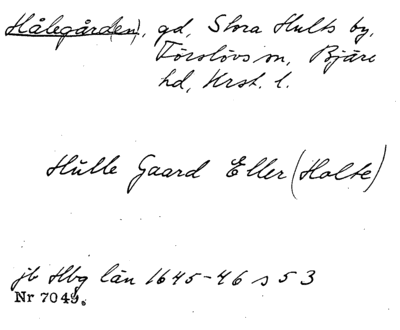 Hålegård(en), gd, Stora Hults by,
Förslövs sn, Bjäre
hd, Krst. l.
Hülle Gaard Eller (Holte)
jb Hbg län 1645-46 s 53
Nr 7049.